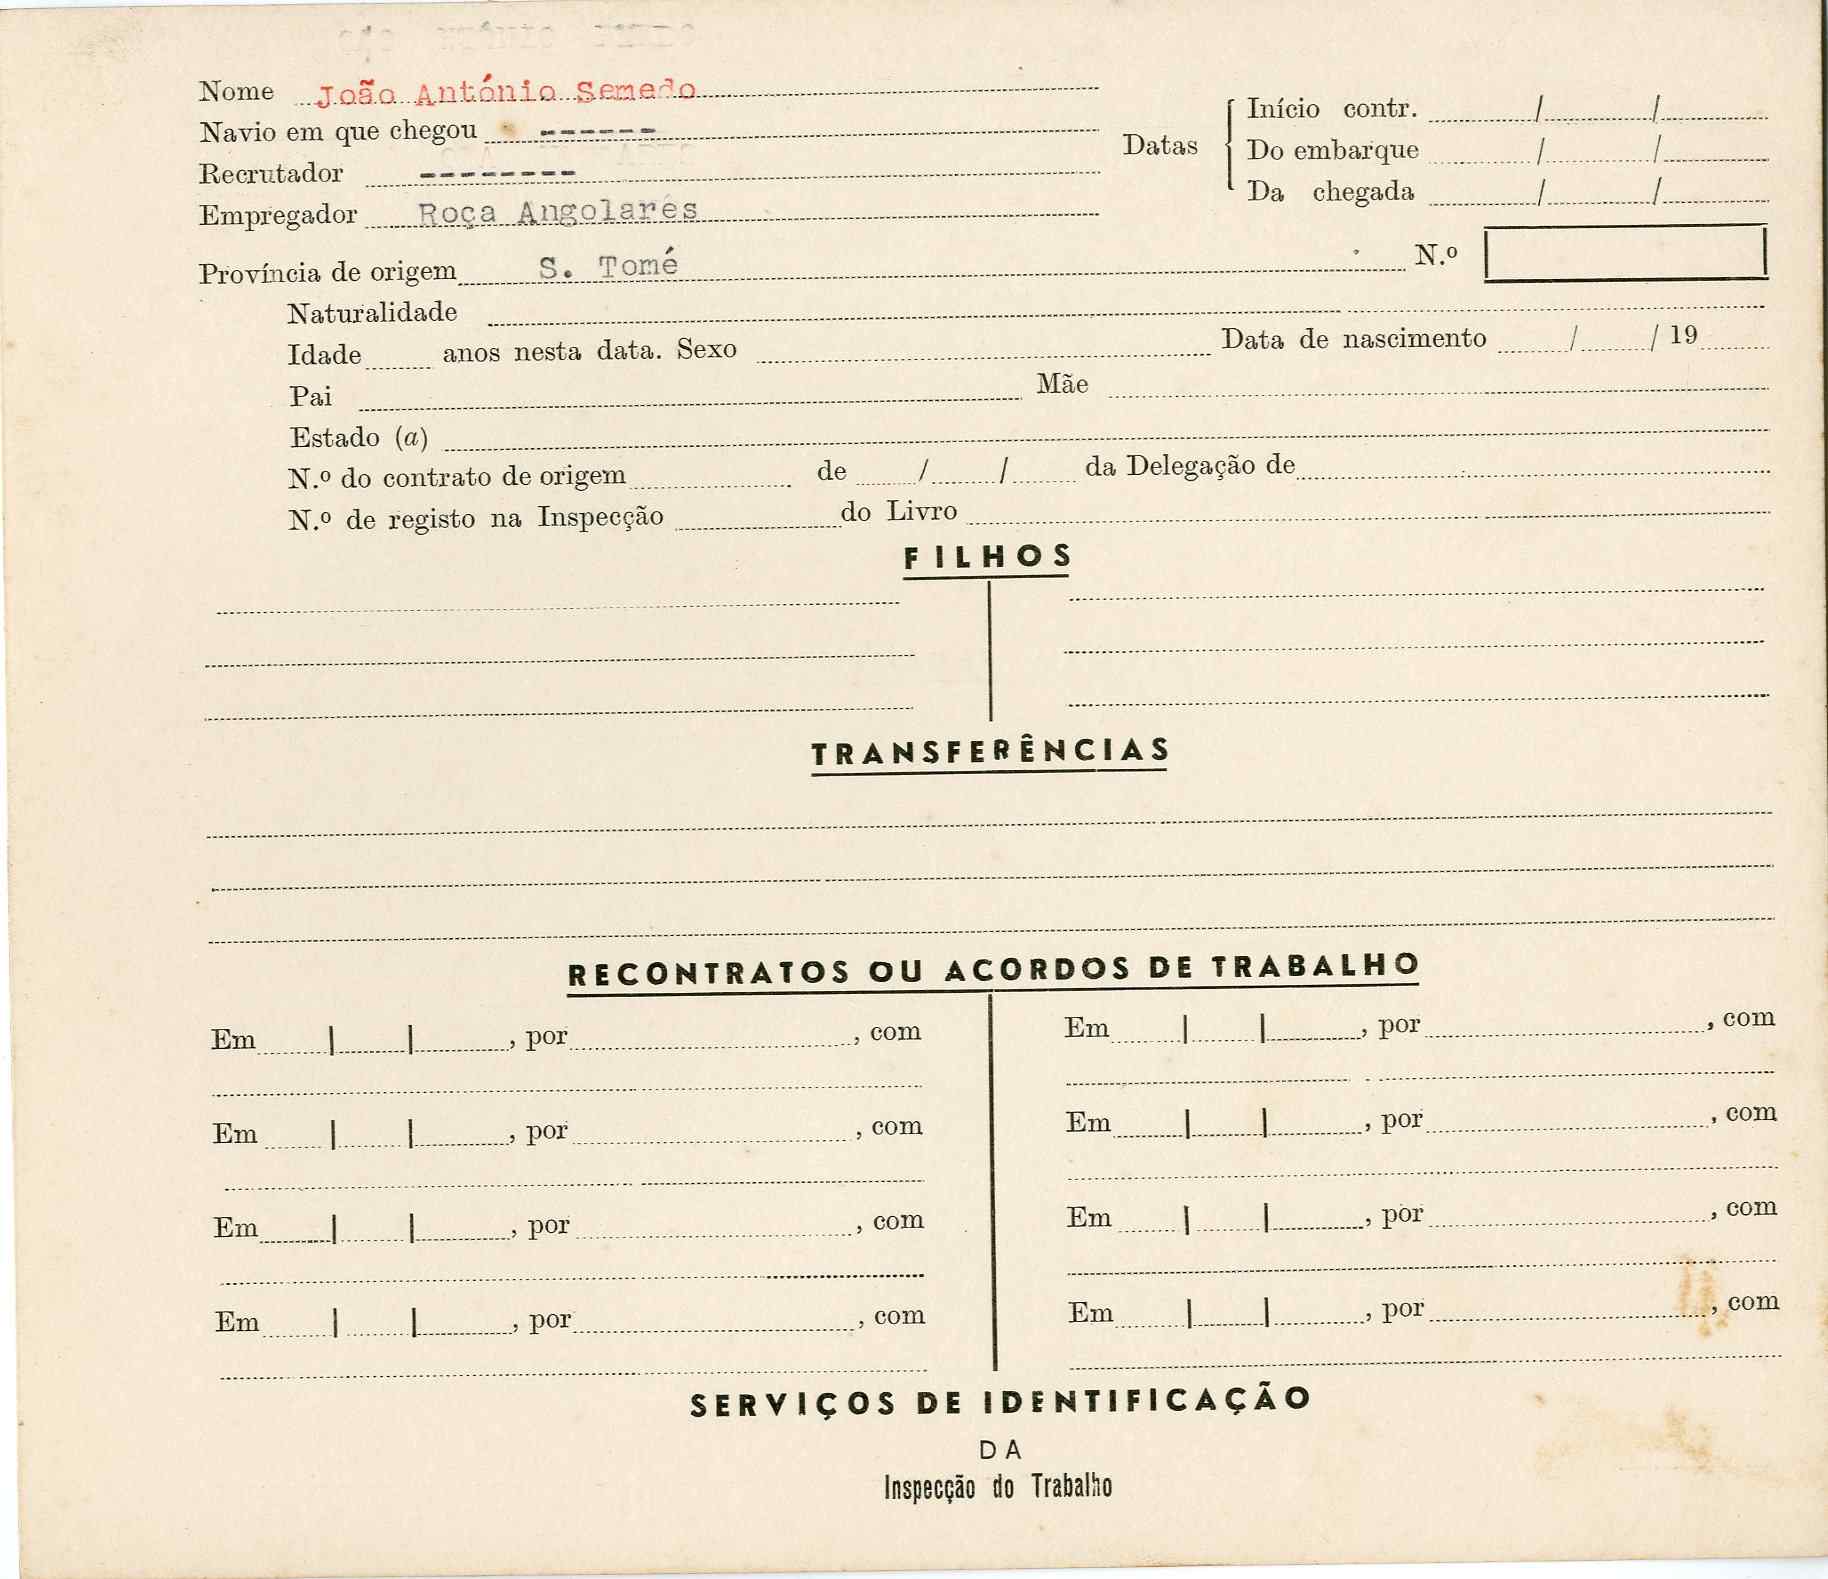 Nome João António Semedo
Navio em que chegou ------
Recrutador --------
Empregador Roça Angolares
Datas
Início contr. / /
Do embarque / /
Da chegada / /
Província de origem S. Tomé N.º
Naturalidade
Idade anos nesta data. Sexo Data de nascimento / / 19
Pai Mãe
Estado (a)
N.º do contrato de origem de / / da Delegação de
N.º de registo na Inspecção do Livro
FILHOS
TRANSFERÊNCIAS
RECONTRATOS OU ACORDOS DE TRABALHO
Em | | , por , com Em | | , por , com
Em | | , por , com Em | | , por , com
Em | | , por , com Em | | , por , com
Em | | , por , com Em | | , por , com
SERVIÇOS DE IDENTIFICAÇÃO
DA
Inspecção do Trabalho